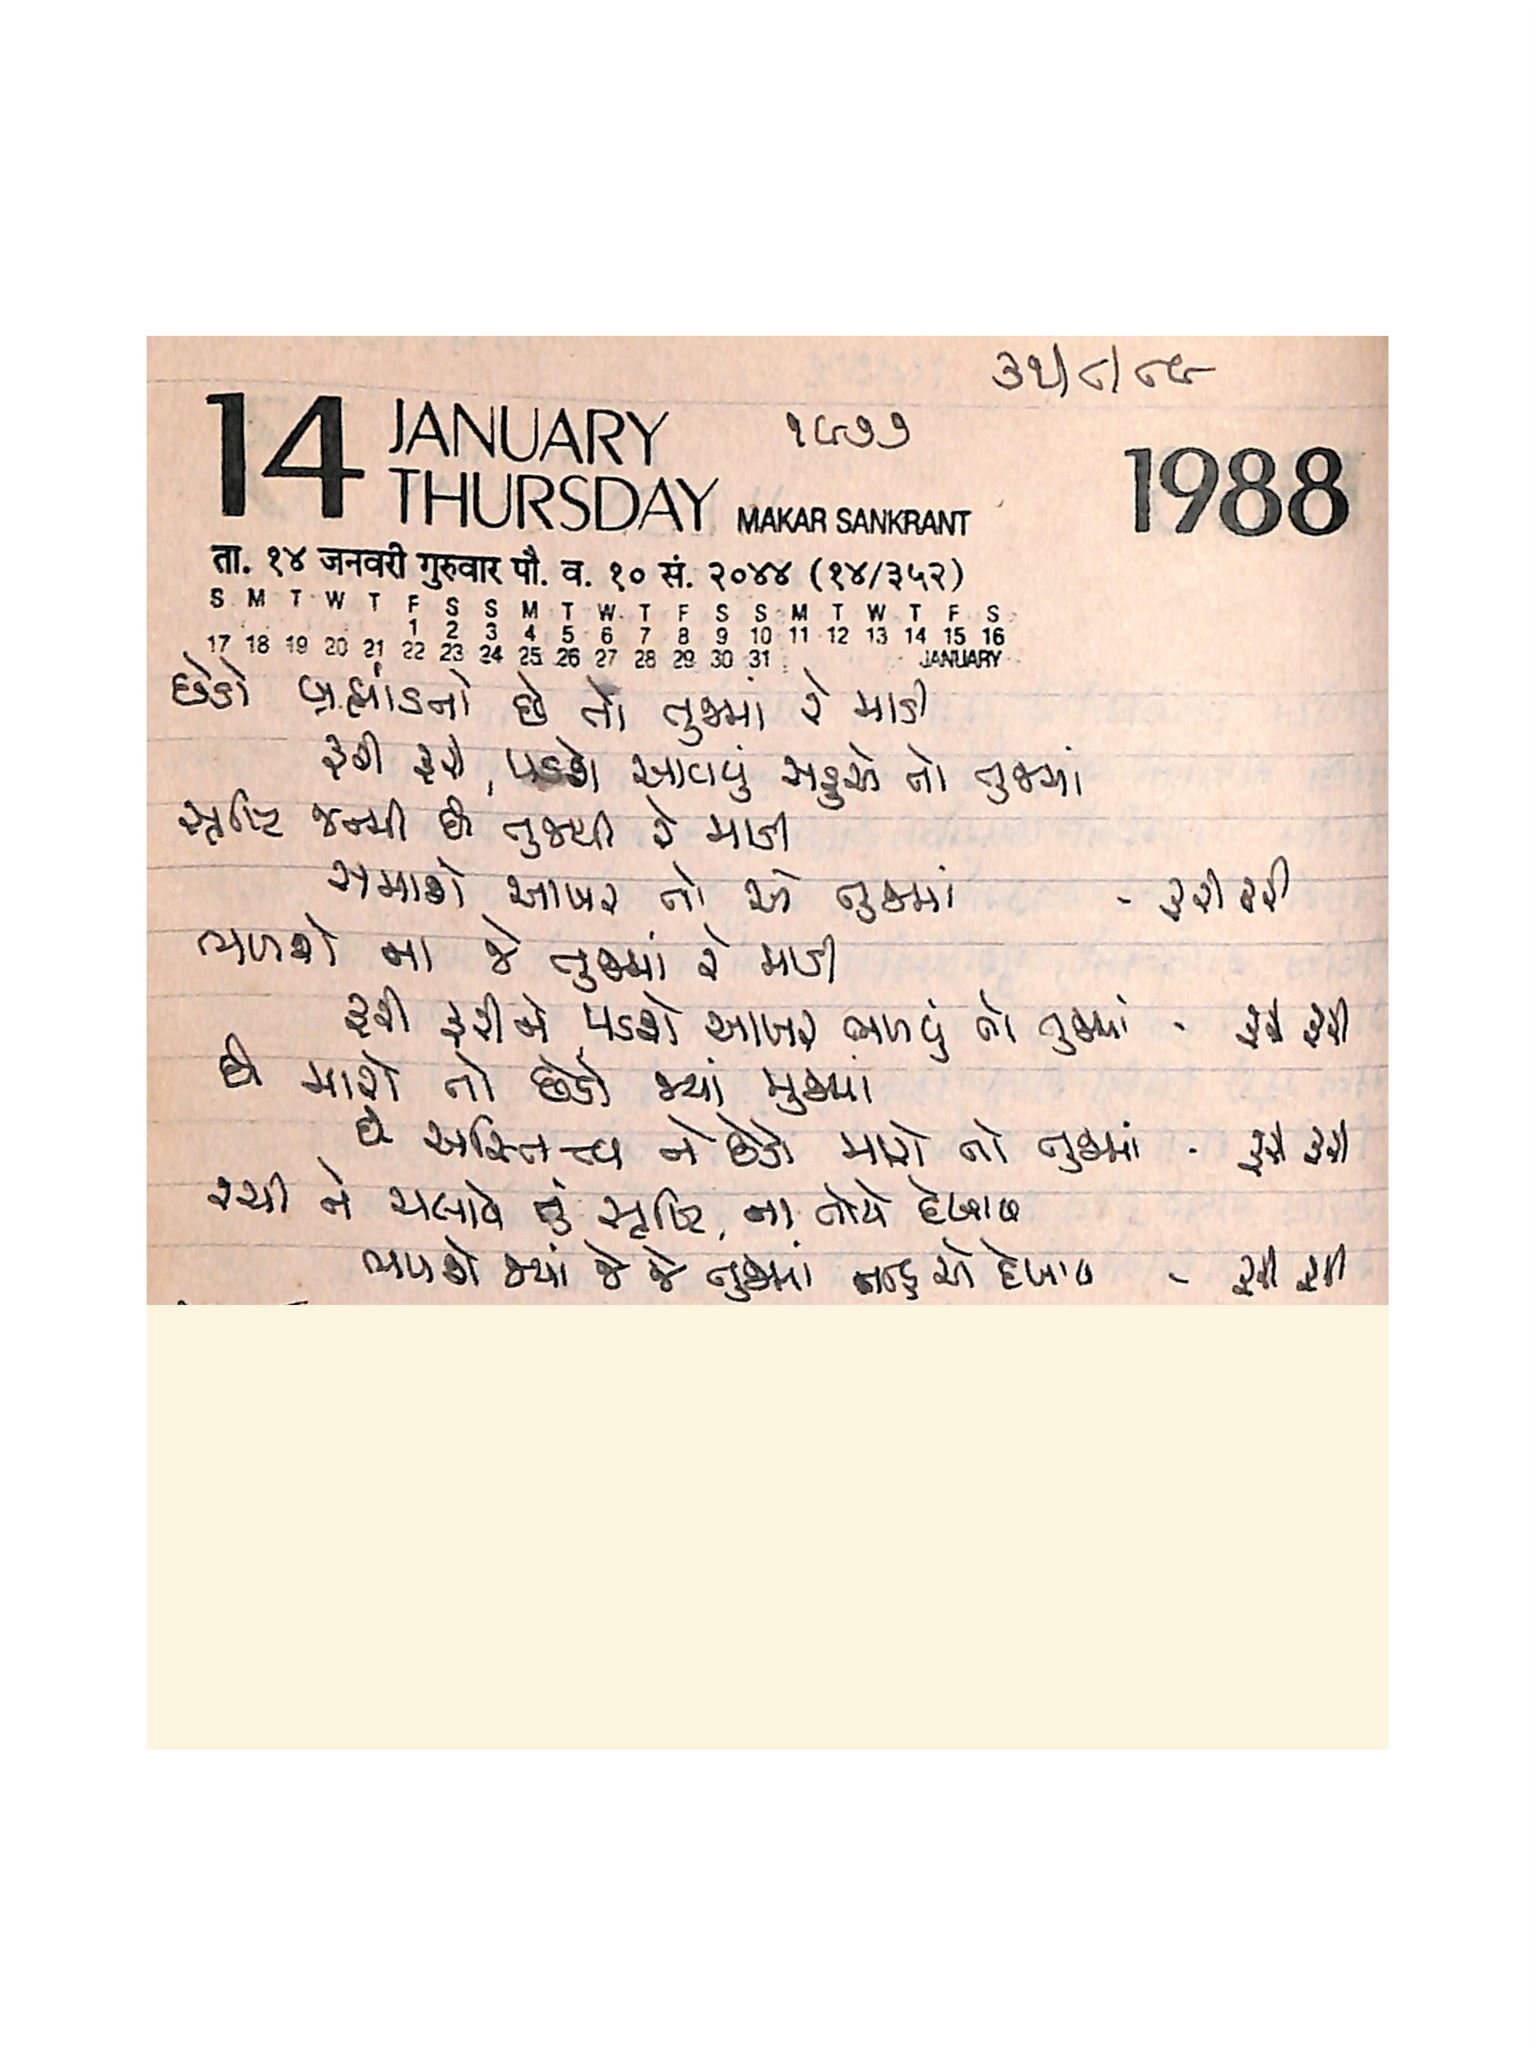 ૩૧/૮/૮૯
14 JANUARY ૧૯૭૭
THURSDAY MAKAR SANKRANT 1988
ता. १४ जनवरी गुरुवार पौ. व. १० सं. २०४४ (१४/३५२)
S M T W T F S S M T W T F S S M T W T F S
1 2 3 4 5 6 7 8 9 10 11 12 13 14 15 16
17 18 19 20 21 22 23 24 25 26 27 28 29 30 31 JANUARY
છેડો બ્રહ્માંડનો છે તો તુજમાં રે માડી
ફરી ફરી, પડશે આવવું સહુએ તો તુજમાં
સૃષ્ટિ જન્મી છે તુજથી રે માડી
સમાશે આખર તો એ તુજમાં - ફરી ફરી
ભળશે ના જે તુજમાં રે માડી
ફરી ફરીને પડશે આખર ભળવું તો તુજમાં - ફરી ફરી
છે મારો તો છેડો જ્યાં મુજમાં
છે અસ્તિત્વ ને છેડો મારો તો તુજમાં - ફરી ફરી
રચી ને ચલાવે તું સૃષ્ટિ, ના તોયે દેખાય
ભળશે જ્યાં જે જે તુજમાં એ દેખાય - ફરી ફરી